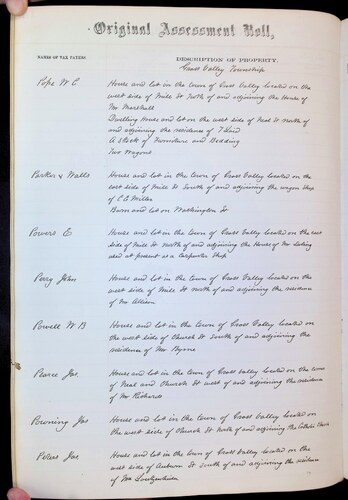 Original Assessment Roll,
NAMES OF TAX PAYERS.
DESCRIPTION OF PROPERTY.
Grass Valley Township
Pope W C
House and lot in the town of Grass Valley located on the
west side of Mill St North of and adjoining the House of
Mr Marshall
Dwelling House and lot on the west side of Neal St north of
and adjoining the residence of T
A Stock of Furniture and Bedding
Two Wagons
Parker & Walls
House and lot in the town of Grass Valley located on the
east side of Mill St South of and adjoining the wagon Shop
of C E Miller
Barn and lot on Washington St
Powers E
House and lot in the town of Grass Valley located on the east
side of Mill St north of and adjoining the House of Mr
used at present as a Carpenter Shop
Perry John
House and lot in the town of Grass Valley located on the
west side of Mill St north of and adjoining the residence
of Mr Allison
Powell W B
House and lot in the town of Grass Valley located on
the west side of Church St South of and adjoining the
residence of Mr Byrne
Pearce Jas
House and lot in the town of Grass Valley located on the corner
of Neal and Church St west of and adjoining the residence
of Mr Richards
Jas
House and lot in the town of Grass Valley located on
the west side of Church St North of and adjoining the Catholic Church
Peters Jas
House and lot in the town of Grass Valley located on the
west side of Auburn St South of and adjoining the residence
of Mr